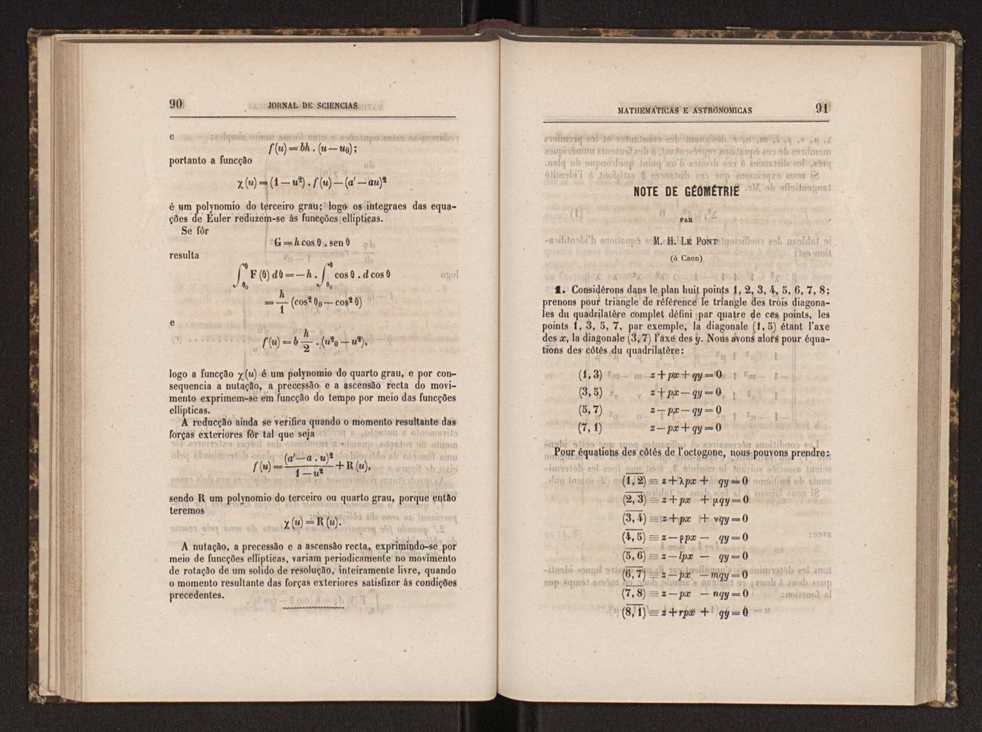 90 JORNAL DE SCIENCIAS
e
f(u) = bh . (u — u₀);
portanto a funcção
χ(u) = (1 — u²) . f(u) — (a' — au)²
é um polynomio do terceiro grau; logo os integraes das equa-
ções de Euler reduzem-se ás funcções ellipticas.
Se fôr
G = h cos θ . sen θ
resulta
∫θ₀^θ F(θ) dθ = — h . ∫θ₀^θ cos θ . d cos θ
= h/1 (cos² θ₀ — cos² θ)
e
f(u) = b h/2 . (u²₀ — u²),
logo a funcção χ(u) é um polynomio do quarto grau, e por con-
sequencia a nutação, a precessão e a ascensão recta do movi-
mento exprimem-se em funcção do tempo por meio das funcções
ellipticas.
A reducção ainda se verifica quando o momento resultante das
forças exteriores fôr tal que seja
f(u) = (a' — a . u)²/(1 — u²) + R(u),
sendo R um polynomio do terceiro ou quarto grau, porque então
teremos
χ(u) = R(u).
A nutação, a precessão e a ascensão recta, exprimindo-se por
meio de funcções ellipticas, variam periodicamente no movimento
de rotação de um solido de resolução, inteiramente livre, quando
o momento resultante das forças exteriores satisfizer ás condições
precedentes.
MATHEMATICAS E ASTRONOMICAS 91
NOTE DE GÉOMÉTRIE
PAR
M. H. LE PONT
(à Caen)
1. Considérons dans le plan huit points 1, 2, 3, 4, 5, 6, 7, 8;
prenons pour triangle de référence le triangle des trois diagona-
les du quadrilatère complet défini par quatre de ces points, les
points 1, 3, 5, 7, par exemple, la diagonale (1, 5) étant l'axe
des x, la diagonale (3, 7) l'axe des y. Nous avons alors pour équa-
tions des côtés du quadrilatère:
(1, 3) z + px + qy = 0
(3, 5) z + px — qy = 0
(5, 7) z — px — qy = 0
(7, 1) z — px + qy = 0
Pour équations des côtés de l'octogone, nous pouvons prendre:
(1, 2) ≡ z + λpx + qy = 0
(2, 3) ≡ z + px + μqy = 0
(3, 4) ≡ z + px + νqy = 0
(4, 5) ≡ z — ρpx — qy = 0
(5, 6) ≡ z — lpx — qy = 0
(6, 7) ≡ z — px — mqy = 0
(7, 8) ≡ z — px — nqy = 0
(8, 1) ≡ z + rpx + qy = 0